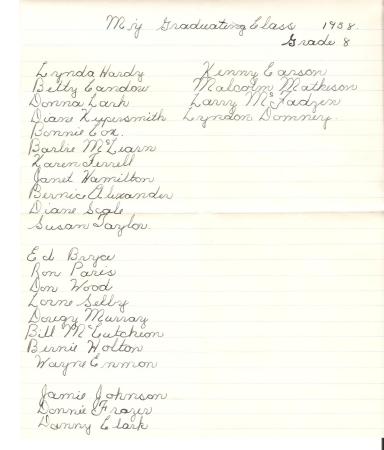 My Graduating Class 1958.
Grade 8
Lynda Hardy
Betty Candow
Donna Lark
Diane Kypersmith
Bonnie Cox.
Barbie McLearn
Karen Ferrell
Janet Hamilton
Bernice Alexander
Diane Scale
Susan Taylor
Kenny Carson
Malcolm Mathison
Larry McFadzen
Lyndon Domney.
Ed Bryce
Ron Paris
Don Wood
Lorne Selby
Dougy Murray
Bill McCutcheon
Bernie Wolton
Wayne Enmon
Jamie Johnson
Donnie Frazer
Danny Clark